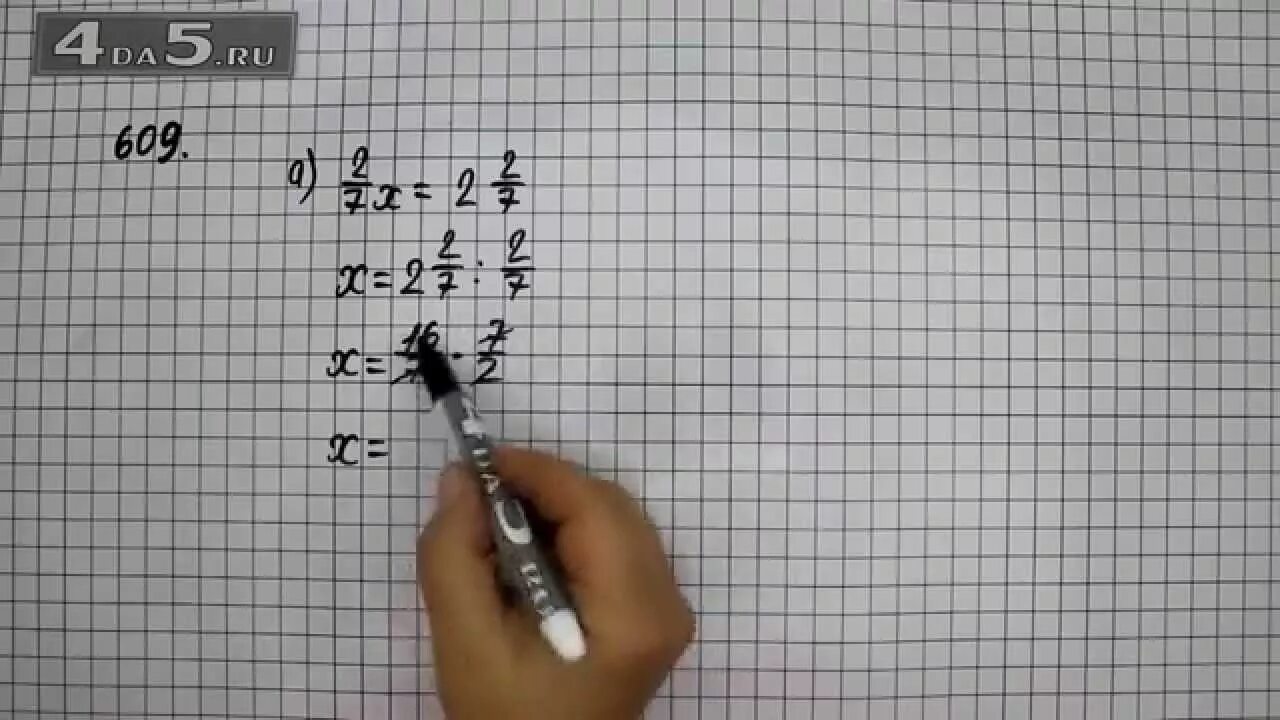 4DA5.RU
609.
а) 2/7 x = 2 2/7
x = 2 2/7 : 2/7
x = 16/7 · 7/2
x =